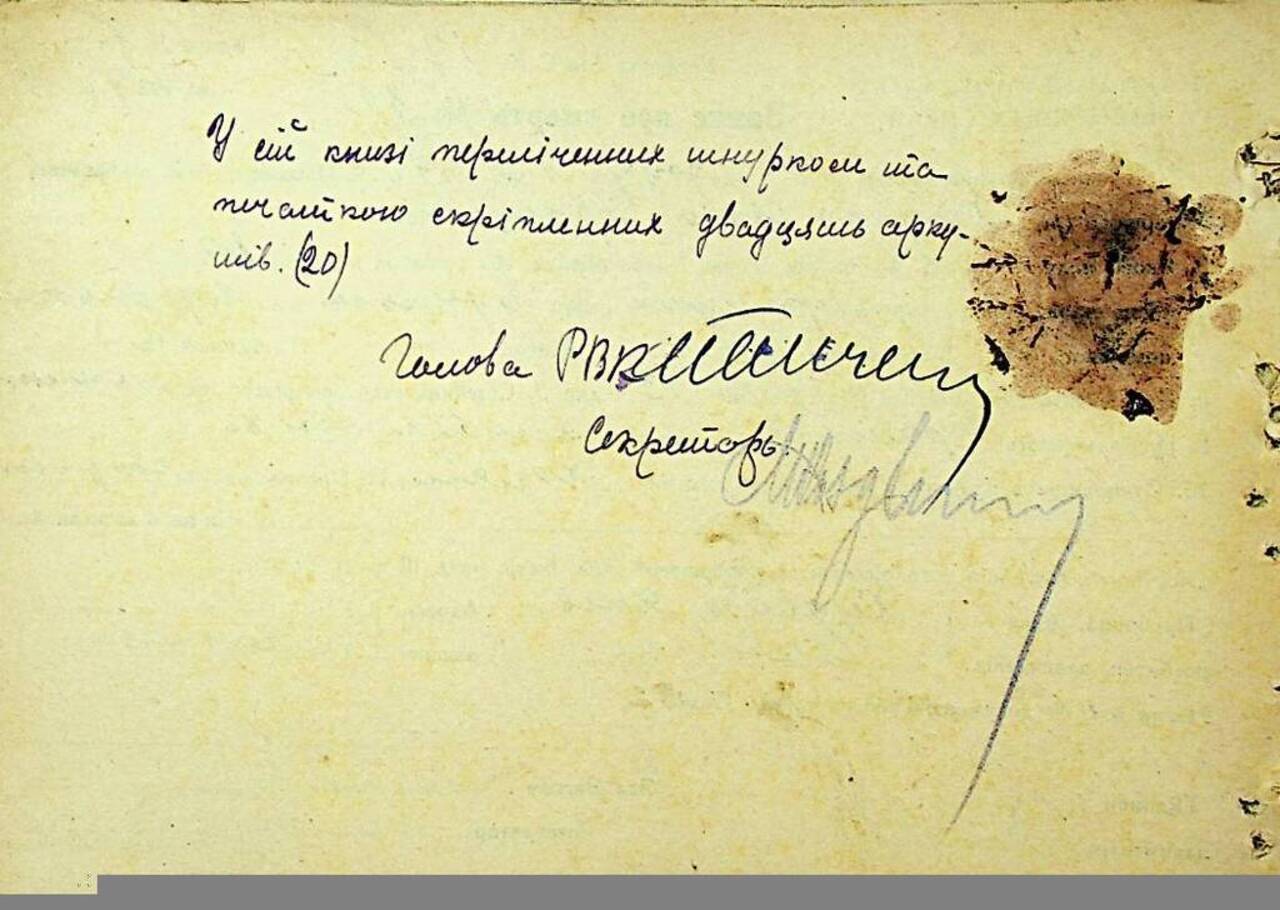 У сій книзі переліченних шнурком та
печаткою скріпленних двадцять арку-
шів. (20)
Голова РВК
Секретарь